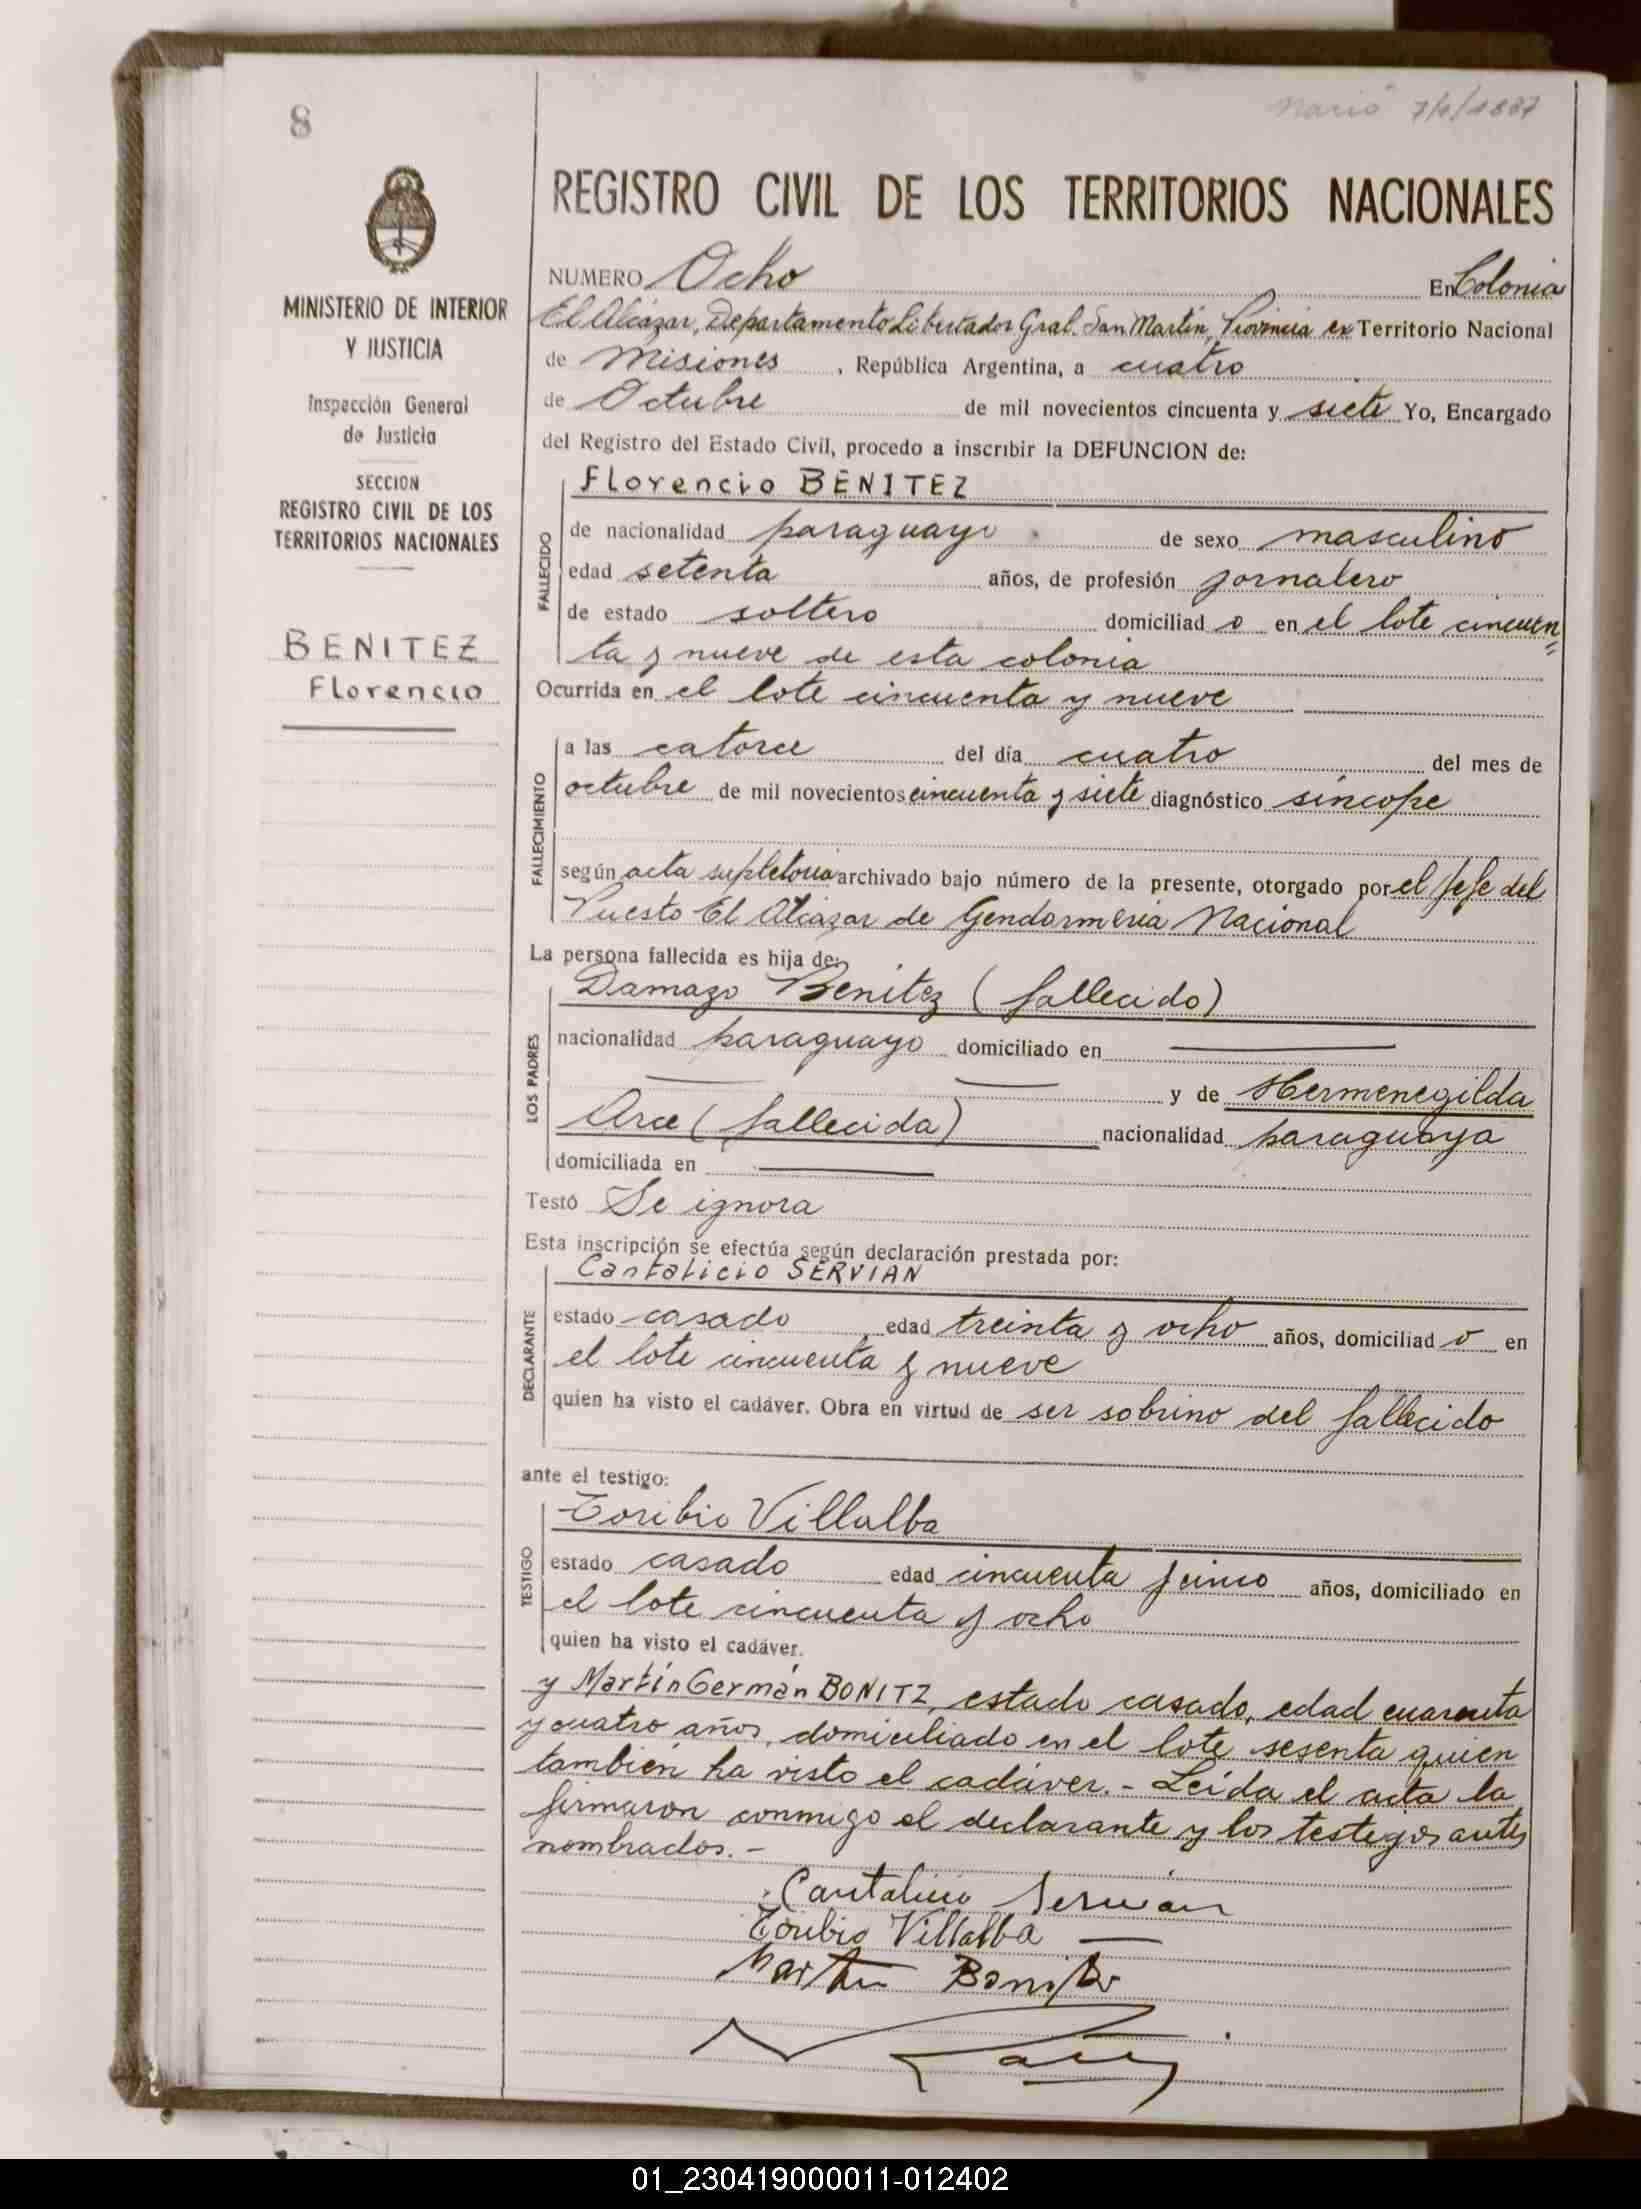 8
Nació 7/1/1887
REGISTRO CIVIL DE LOS TERRITORIOS NACIONALES
MINISTERIO DE INTERIOR
Y JUSTICIA
Inspección General
de Justicia
SECCION
REGISTRO CIVIL DE LOS
TERRITORIOS NACIONALES
BENITEZ
Florencio
NUMERO Ocho En Colonia
El Alcázar, Departamento Libertador Gral. San Martín, Provincia ex Territorio Nacional
de Misiones, República Argentina, a cuatro
de Octubre de mil novecientos cincuenta y siete Yo, Encargado
del Registro del Estado Civil, procedo a inscribir la DEFUNCION de:
Florencio BENITEZ
FALLECIDO
de nacionalidad paraguayo de sexo masculino
edad setenta años, de profesión jornalero
de estado soltero domiciliad o en el lote cincuen=
ta y nueve de esta colonia
Ocurrida en el lote cincuenta y nueve
FALLECIMIENTO
a las catorce del día cuatro del mes de
octubre de mil novecientos cincuenta y siete diagnóstico síncope
según acta supletoria archivado bajo número de la presente, otorgado por el Jefe del
Puesto El Alcázar de Gendarmería Nacional
La persona fallecida es hija de:
LOS PADRES
Damazo Benitez (fallecido)
nacionalidad paraguayo domiciliado en
y de Hermenegilda
Arce (fallecida) nacionalidad paraguaya
domiciliada en
Testó Se ignora
Esta inscripción se efectúa según declaración prestada por:
DECLARANTE
Cantalicio SERVIAN
estado casado edad treinta y ocho años, domiciliad o en
el lote cincuenta y nueve
quien ha visto el cadáver. Obra en virtud de ser sobrino del fallecido
ante el testigo:
TESTIGO
Toribio Villalba
estado casado edad cincuenta y cinco años, domiciliado en
el lote cincuenta y ocho
quien ha visto el cadáver.
y Martín Germán BONITZ, estado casado, edad cuarenta
y cuatro años, domiciliado en el lote sesenta quien
también ha visto el cadáver. - Leída el acta la
firmaron conmigo el declarante y los testigos antes
nombrados. -
Cantalicio Servián
Toribio Villalba
Martin Bonitz
01_230419000011-012402